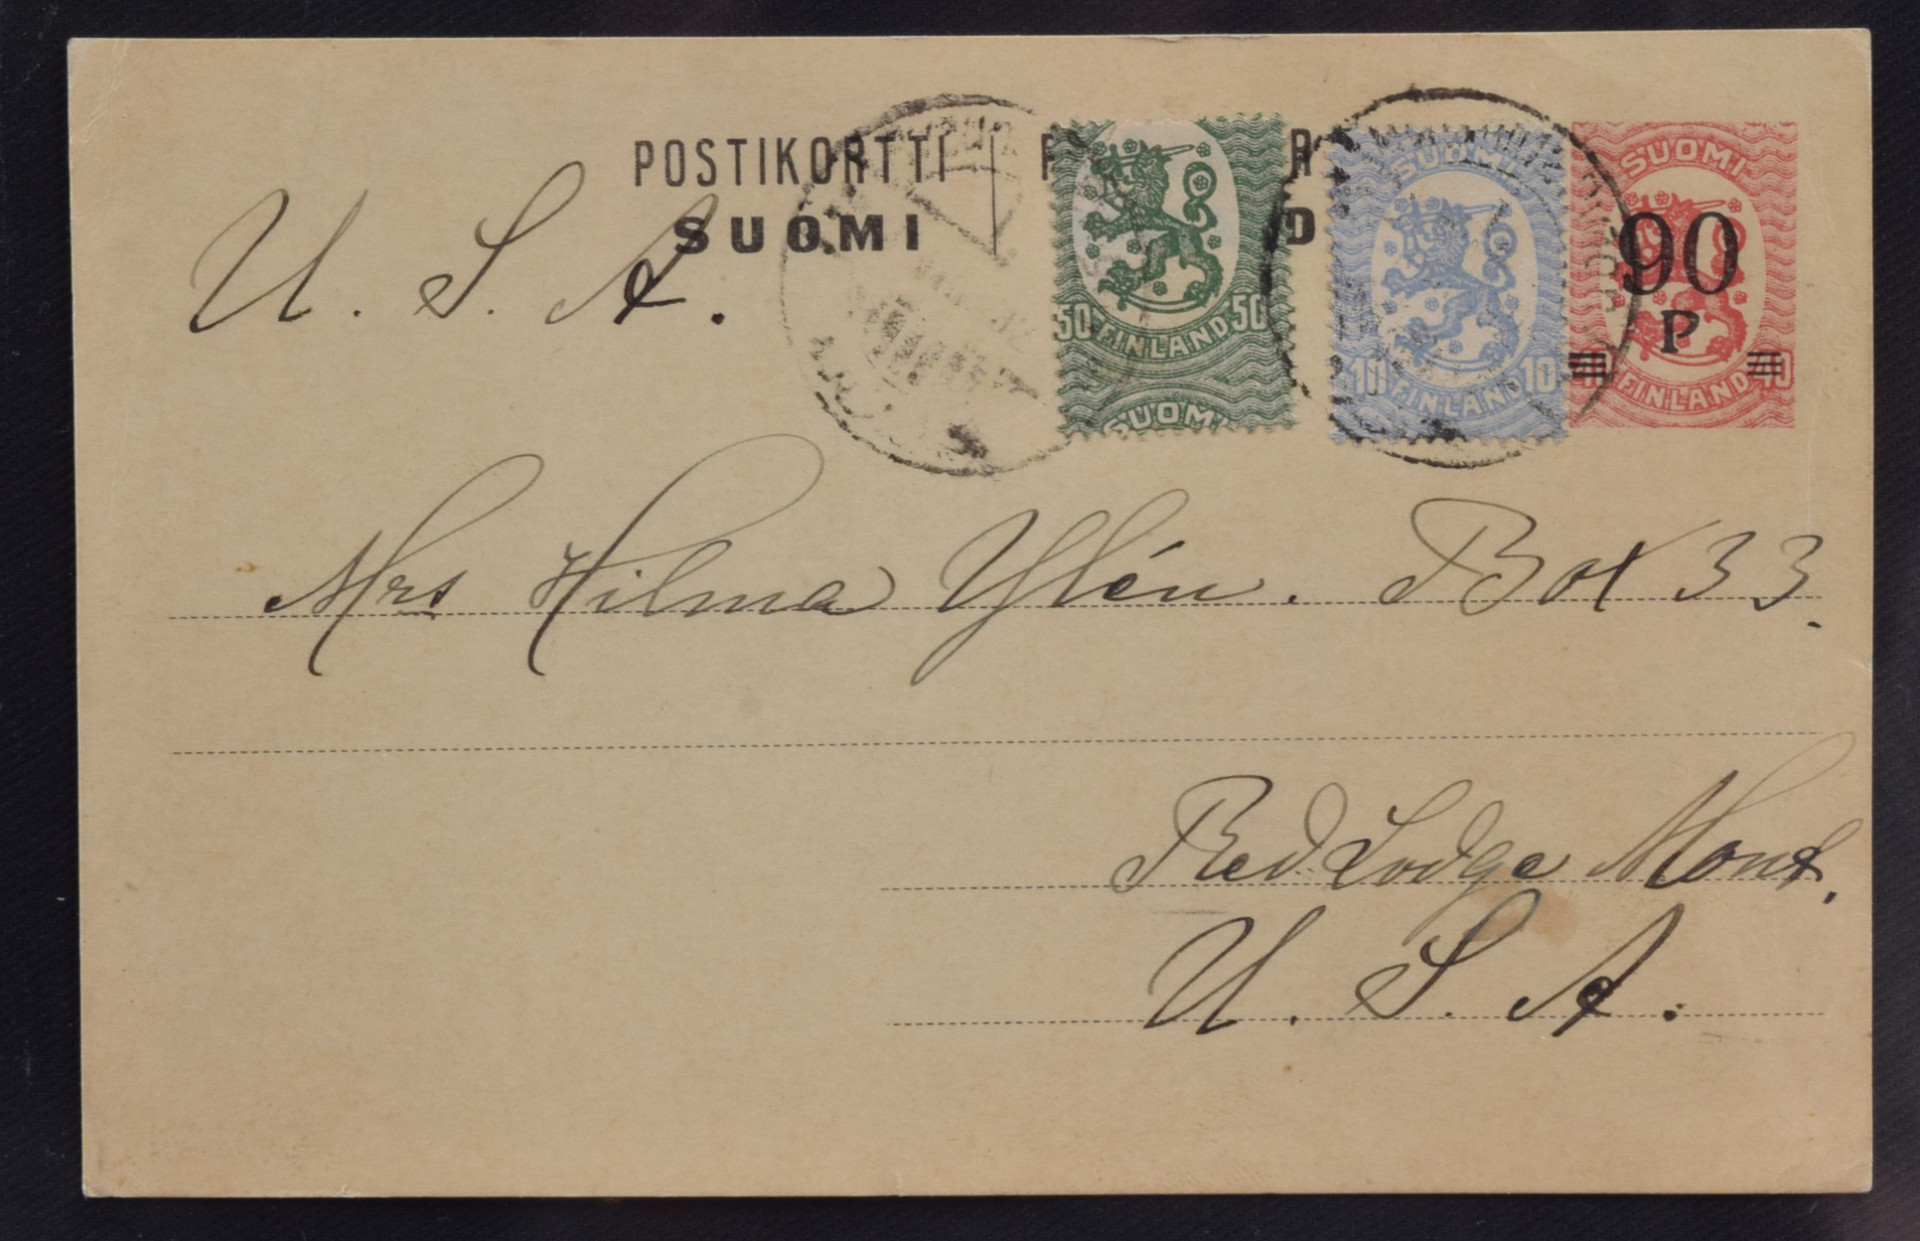 POSTIKORTTI
SUOMI
U. S. A.
50 FINLAND 50
SUOMI
SUOMI
10 FINLAND 10
SUOMI
90
P
40 FINLAND 40
Mrs Hilma Ylén. Box 33.
Red Lodge Mont.
U. S. A.